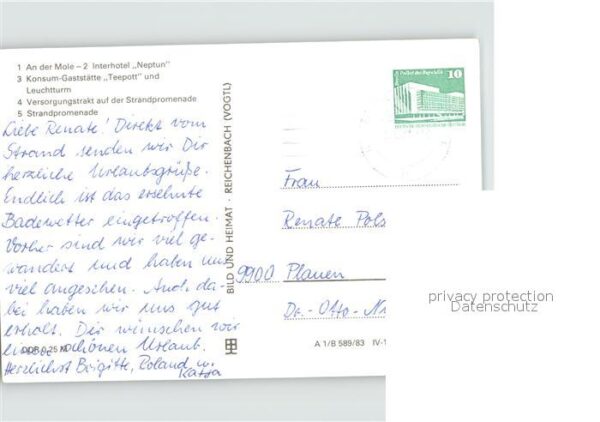 1 An der Mole – 2 Interhotel „Neptun"
3 Konsum-Gaststätte „Teepott" und
Leuchtturm
4 Versorgungstrakt auf der Strandpromenade
5 Strandpromenade
Liebe Renate! Direkt vom
Strand senden wir Dir
herzliche Urlaubsgrüße.
Endlich ist das ersehnte
Badewetter eingetroffen.
Vorher sind wir viel ge-
wandert und haben uns
viel angesehen. Auch da-
bei haben wir uns gut
erholt. Dir wünschen wir
einen schönen Urlaub.
Herzlichst Brigitte, Roland u.
Katja
DDR 0,25 M
BILD UND HEIMAT · REICHENBACH (VOGTL)
Palast der Republik 10
Frau
Renate Pols
9900 Plauen
Dr.-Otto-N
A 1/B 589/83 IV-1
privacy protection
Datenschutz